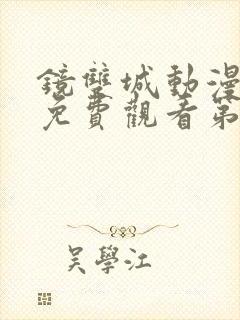 鏡雙城動漫
免費觀看第
吳學江